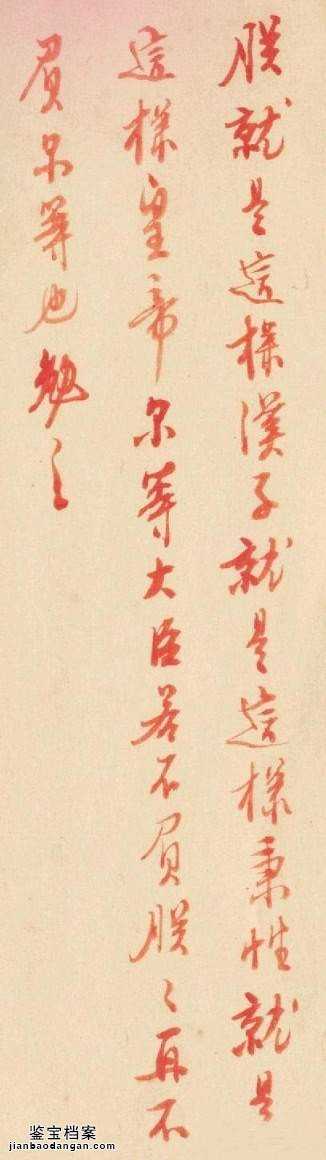 朕就是這樣漢子就是這樣秉性就是
這樣皇帝尔等大臣若不負朕〻再不
負尔等也勉之
鉴宝档案
jianbaodangan.com